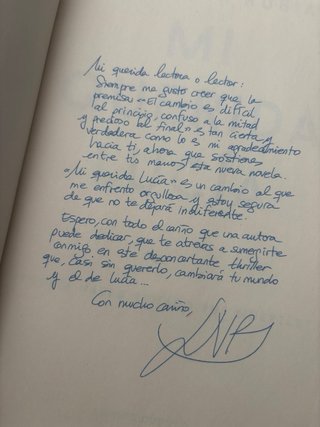 Mi querida lectora o lector:
Siempre me gustó creer que la
premisa: «El cambio es difícil
al principio, confuso a la mitad
y precioso al final» es tan cierta y
verdadera como lo es mi agradecimiento
hacia ti, ahora que sostienes
entre tus manos esta nueva novela.
«Mi querida Lucía» es un cambio al que
me enfrento orgullosa y estoy segura
de que no te dejará indiferente.
Espero, con todo el cariño que una autora
puede dedicar, que te atrevas a sumergirte
conmigo en este desconcertante thriller
que, casi sin quererlo, cambiará tu mundo
y el de Lucía...
Con mucho cariño,